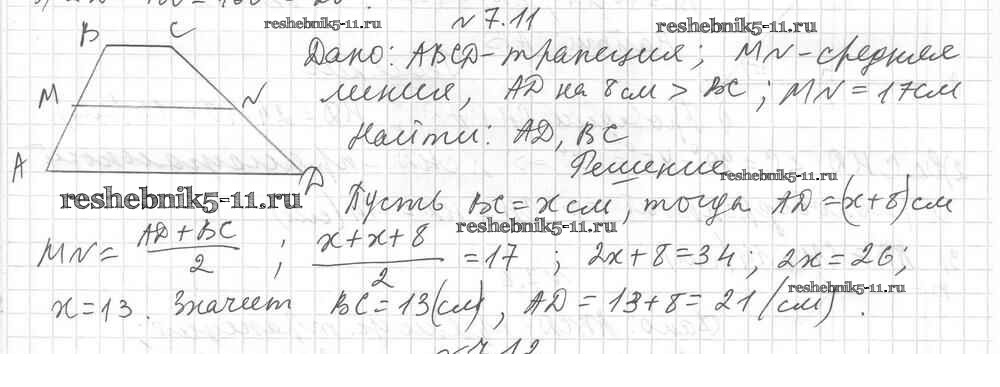 № 7.11
reshebnik5-11.ru
reshebnik5-11.ru
B C
Дано: ABCD-трапеция; MN-средняя
M N
линия, AD на 8 см > BC; MN = 17см
Найти: AD, BC
A D
Решение
reshebnik5-11.ru
reshebnik5-11.ru
Пусть BC = x см, тогда AD = (x+8) см
reshebnik5-11.ru
MN = (AD + BC)/2 ; (x+x+8)/2 = 17 ; 2x+8=34; 2x=26;
reshebnik5-11.ru
x=13. Значит BC=13(см), AD = 13+8=21 (см).